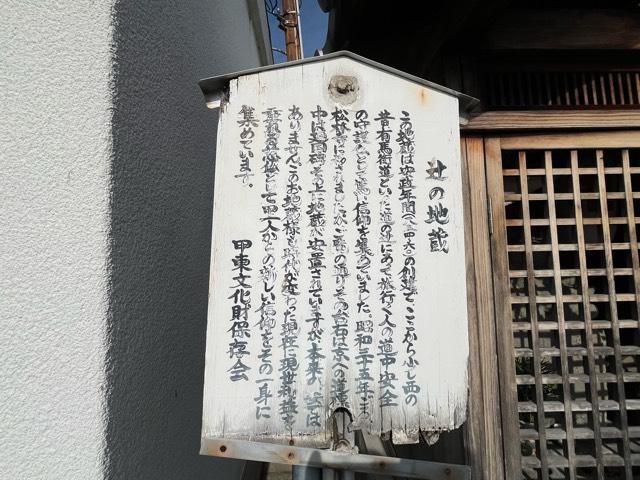 辻の地蔵
この地蔵は安政年間(一八五四〜六〇)の創建で、ここから少し西の
昔有馬街道といった道の辻にあって旅行く人の道中安全
の守護仏として篤い信仰を集めていました。昭和三十五年
松林寺に移されましたが ご覧の通りその台石は京への道標
中は道同碑その上に地蔵が安置されていますが、本来の姿では
ありません。このお地蔵様も時代が変わった現在に現世利益を
仏として里人からの新しい信仰をその一身に
集めています。
甲東文化財保存会